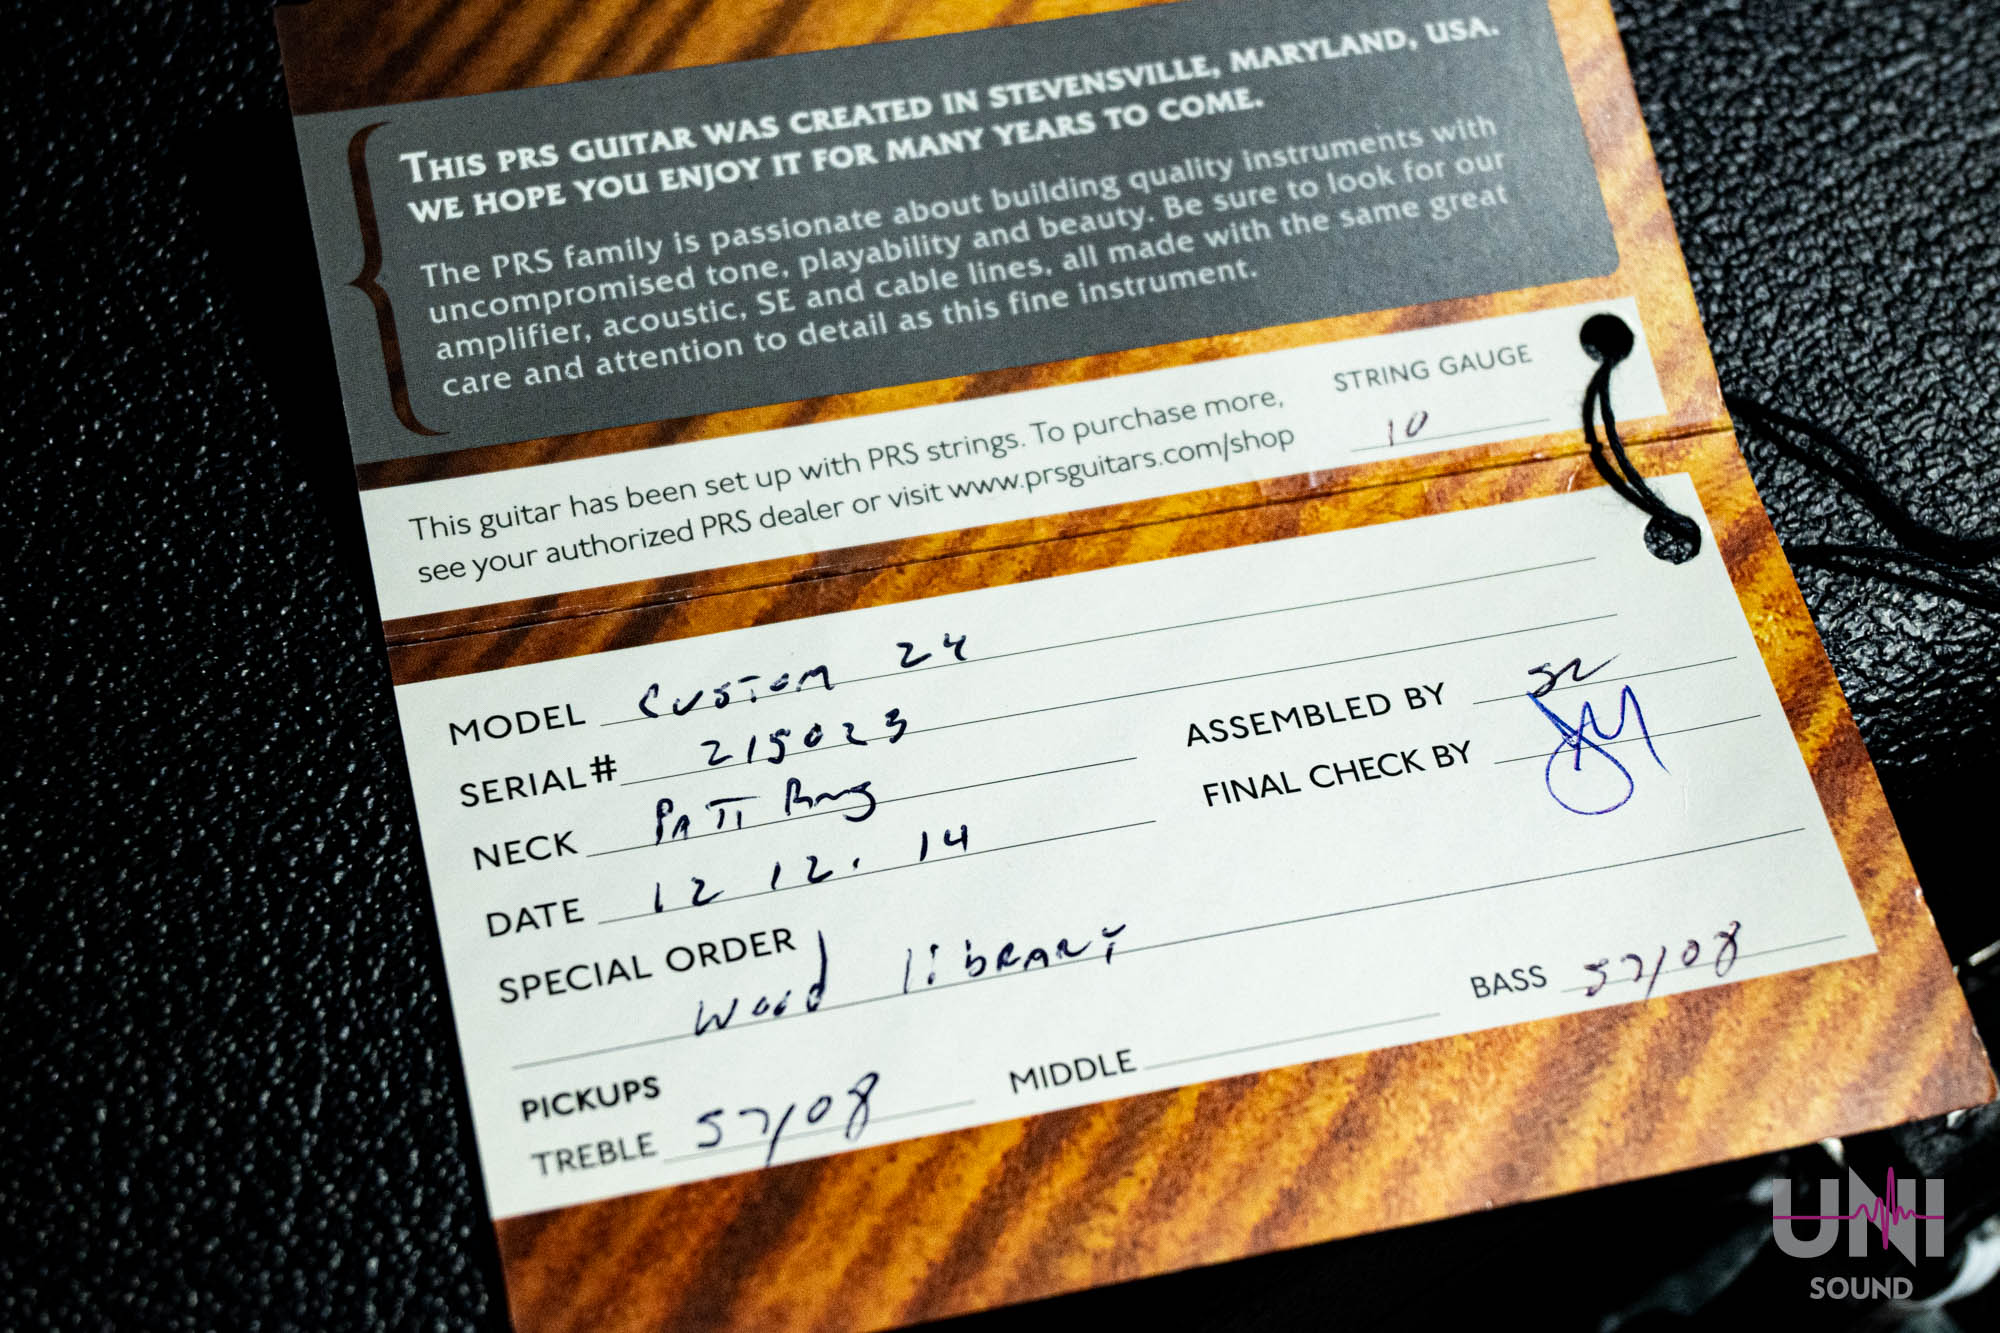 THIS PRS GUITAR WAS CREATED IN STEVENSVILLE, MARYLAND, USA.
WE HOPE YOU ENJOY IT FOR MANY YEARS TO COME.
The PRS family is passionate about building quality instruments with
uncompromised tone, playability and beauty. Be sure to look for our
amplifier, acoustic, SE and cable lines, all made with the same great
care and attention to detail as this fine instrument.
This guitar has been set up with PRS strings. To purchase more,
see your authorized PRS dealer or visit www.prsguitars.com/shop
STRING GAUGE
10
MODEL CUSTOM 24
SERIAL# 215023
NECK PATT
DATE 12 12. 14
ASSEMBLED BY
FINAL CHECK BY
SPECIAL ORDER
Wood liBRARY
PICKUPS
TREBLE 57/08
MIDDLE
BASS 57/08
UNI
SOUND